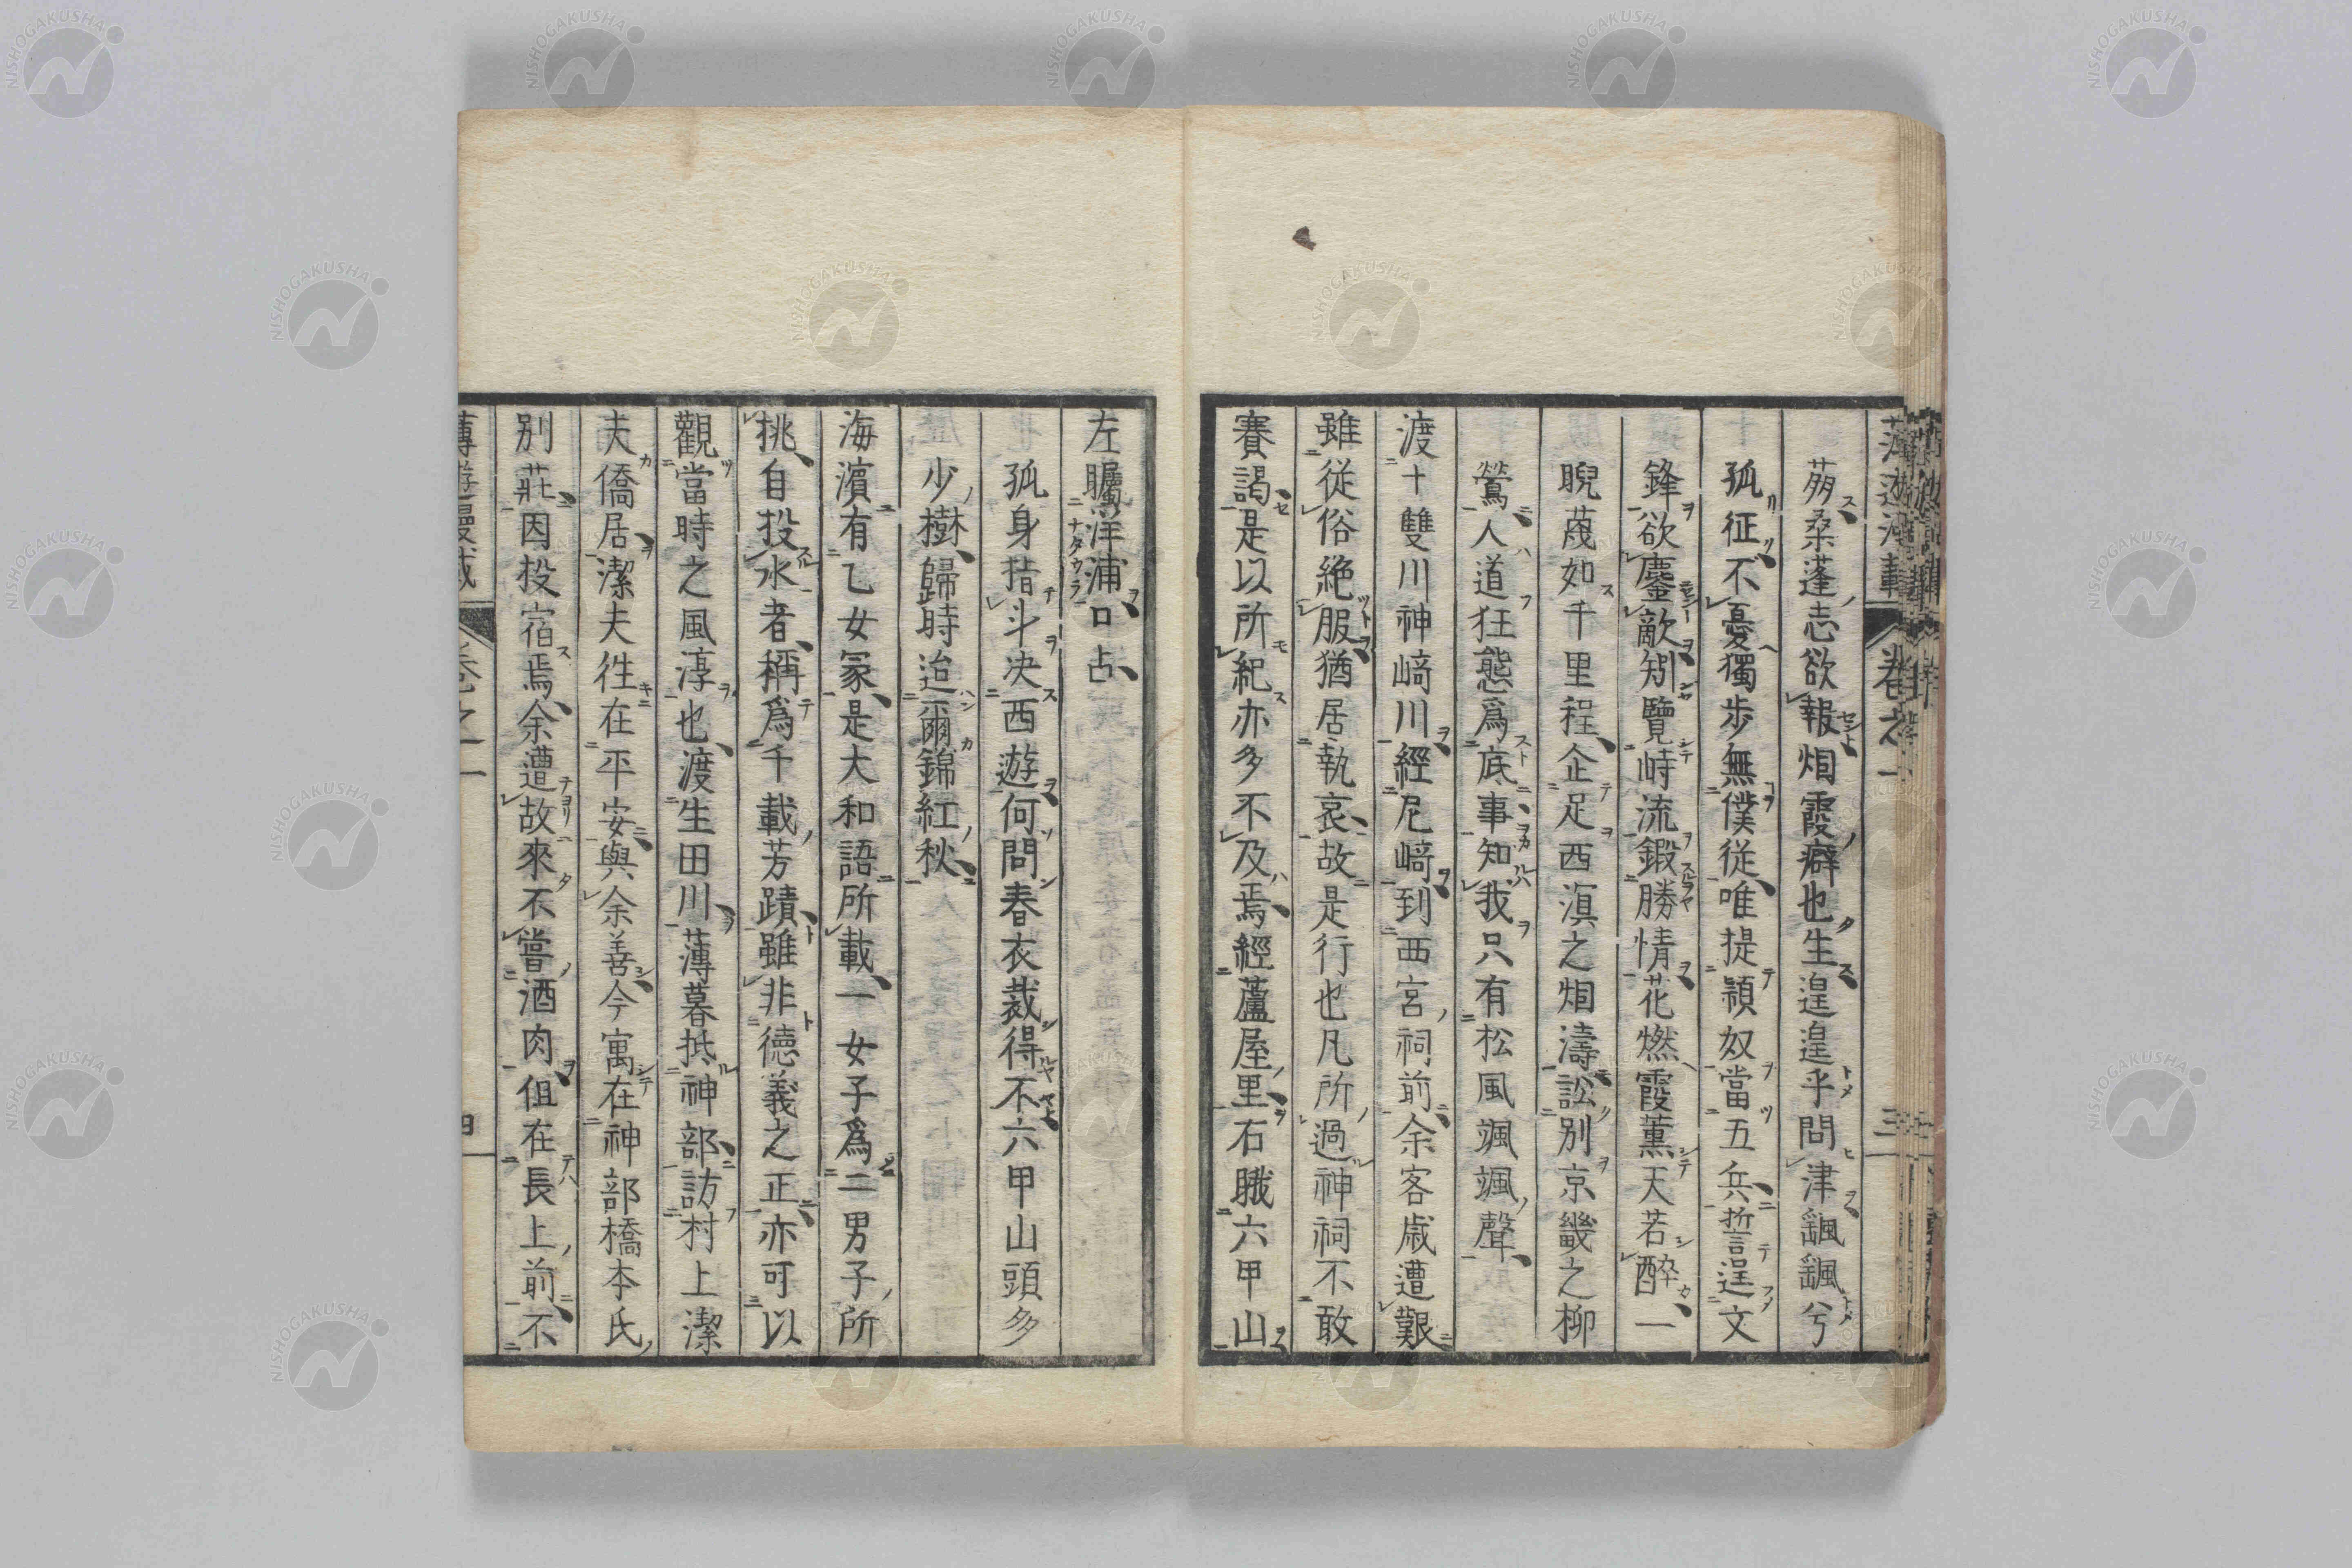 薄遊漫載 卷之一 三
蒴桑蓬志欲報烟霞癖也生遑遑乎問津飄飄兮
孤征不憂獨步無僕從唯提頴奴當五兵哲逞文
鋒欲鏖敵矧覽峙流鍛勝情花燃霞薰天若醉一
睨蔑如千里程企足西溟之烟濤訟別京畿之柳
鶯人道狂態爲底事知我只有松風颯颯聲
渡十雙川神﨑川經尼﨑到西宮祠前余客歲遭艱
雖從俗絶服猶居執哀故是行也凡所過神祠不敢
賽謁是以所紀亦多不及焉經蘆屋里石睋六甲山
左矚洋浦口占
孤身揹斗决西遊何問春衣裁得不六甲山頭多
少樹歸時迨爾錦紅秋
海濵有乙女冢是大和語所載一女子爲二男子所
挑自投水者稱爲千載芳蹟雖非德義之正亦可以
觀當時之風淳也渡生田川薄暮抵神部訪村上潔
夫僑居潔夫徃在平安與余善今寓在神部橋本氏
別莊因投宿焉余遭故來不嘗酒肉伹在長上前不
薄遊漫載 卷之一 四
NISHOGAKUSHA